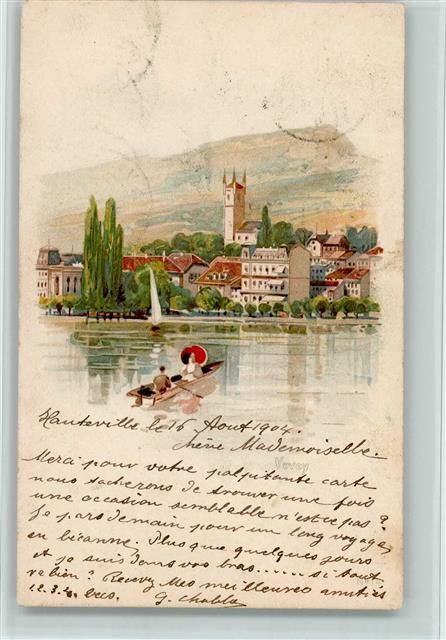 Hauteville le 16 Août 1904.
Chère Mademoiselle.
Vevey
Merci pour votre palpitante carte
nous tacherons de trouver une fois
une occasion semblable n'est ce pas?
Je pars demain pour un long voyage
en bécanne. Plus que quelques jours
et je suis dans vos bras..... si tout
va bien? Recevez Mes meilleures amitiés
12.3.
G.